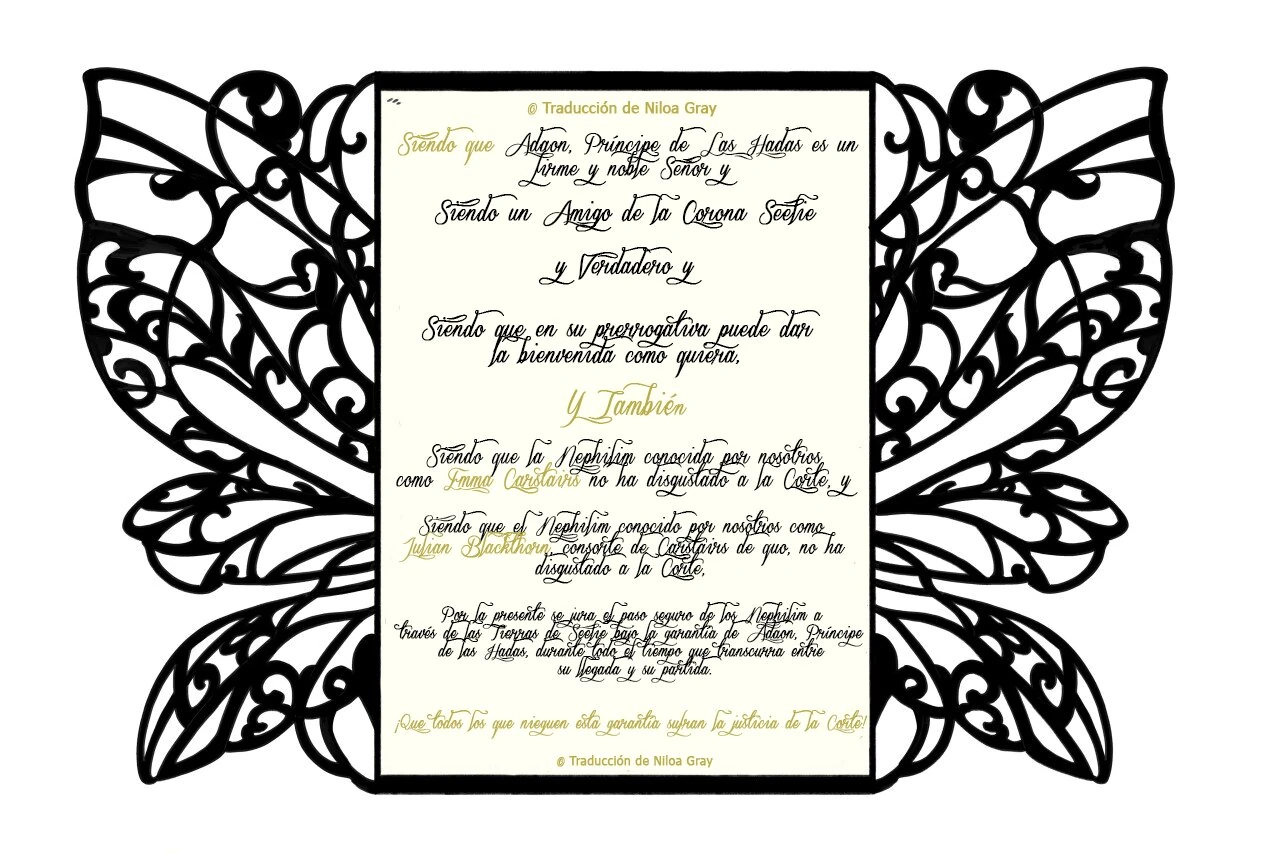 @ Traducción de Niloa Gray
Siendo que Adaon, Príncipe de Las Hadas es un
firme y noble Señor y
Siendo un Amigo de la Corona Seelie
y Verdadero y
Siendo que en su prerrogativa puede dar
la bienvenida como quiera,
Y También
Siendo que la Nephilim conocida por nosotros
como Emma Carstairs no ha disgustado a la Corte, y
Siendo que el Nephilim conocido por nosotros como
Julian Blackthorn, consorte de Carstairs de quo, no ha
disgustado a la Corte,
Por la presente se jura el paso seguro de los Nephilim a
través de las Tierras de Seelie bajo la garantía de Adaon, Príncipe
de las Hadas, durante todo el tiempo que transcurra entre
su llegada y su partida.
¡Que todos los que nieguen esta garantía sufran la justicia de la Corte!
@ Traducción de Niloa Gray